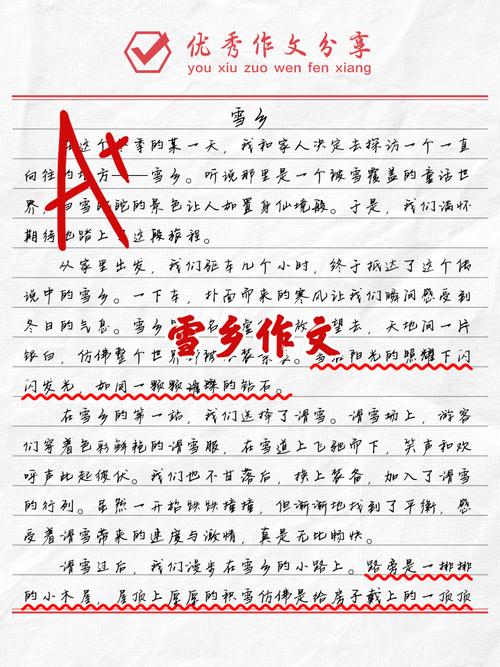 优秀作文分享
you xiu zuo wen fen xiang
A+
雪乡
这个季的某一天，我和家人决定去探访一个一直
向往的方——雪乡。听说那里是一个被雪覆盖的童话世
界，白雪皑皑的景色让人如置身仙境般。于是，我们满怀
期待地踏上了这段旅程。
从家里出发，我们驱车几个小时，终于抵达了这个传
说中的雪乡。一下车，扑面而来的寒风让我们瞬间感受到
冬日的气息。雪乡名放望去，天地间一片
雪乡作文
银白，仿佛整个世界都被装阳光的照耀下闪
闪发光，如同一颗颗璀璨的钻石。
在雪乡的第一站，我们选择了滑雪。滑雪场上，游客
们穿着色彩鲜艳的滑雪服，在雪道上飞驰而下，笑声和欢
呼声此起彼伏。我们也不甘落后，换上装备，加入了滑雪
的行列。虽然一开始跌跌撞撞，但渐渐地找到了平衡，感
受着滑雪带来的速度与激情，真是无比畅快。
滑雪过后，我们漫步在雪乡的小路上。路旁是一排排
的小木屋，屋顶上厚厚的积雪仿佛是给房子戴上的一顶顶